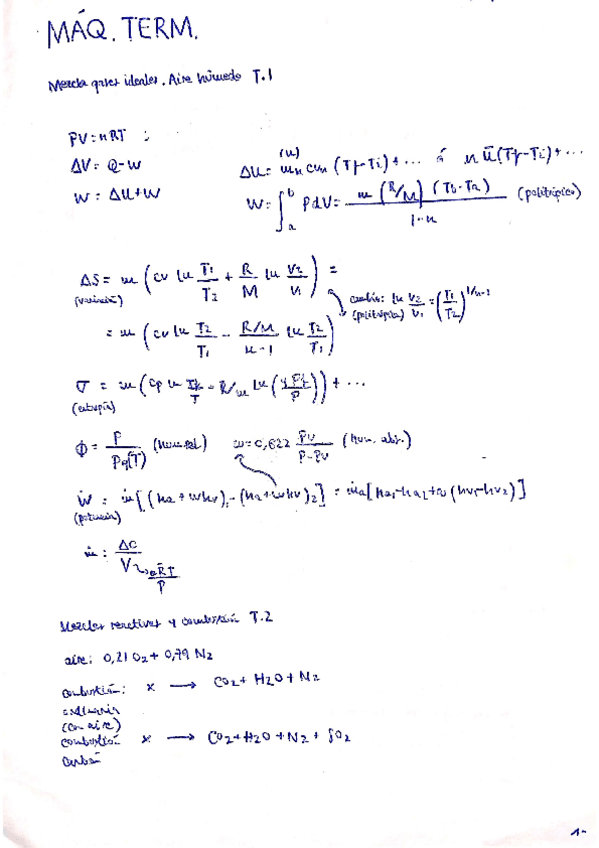 MÁQ. TERM.
Mezcla gases ideales. Aire húmedo T.1
PV=nRT ;
ΔV= Q-W
W= ΔU+W
ΔU= m_n cvn (Tf-Ti)+... ó n ū(Tf-Ti)+...
(u)
W= ∫_a^b PdV= m (R/M) (Tb-Ta) / 1-n (politrópico)
ΔS= m (cv ln T1/T2 + R/M ln V2/V1) =
(variación)
cambio: ln V2/V1 = (T1/T2)^1/n-1
(politrópico)
= m (cv ln T2/T1 - R/M / n-1 ln T2/T1)
σ = m (cp ln Tf/T - R/m ln (y Pf/P)) + ...
(entropía)
ϕ= P/Pg(T) (hum. rel.) ω=0,622 Pv/P-Pv (hum. abs.)
Ẇ = ṁ[(ha+whv)1-(ha+whv)2] = ṁa[ha1-ha2+w(hv1-hv2)]
(potencia)
ṁ: ΔC/V
R̄T/P
Mezclas reactivas y combustión T.2
aire: 0,21 O2 + 0,79 N2
combustión: x → CO2+ H2O + N2
(con aire)
combustión x → CO2+H2O+N2+ SO2
carbón
1-